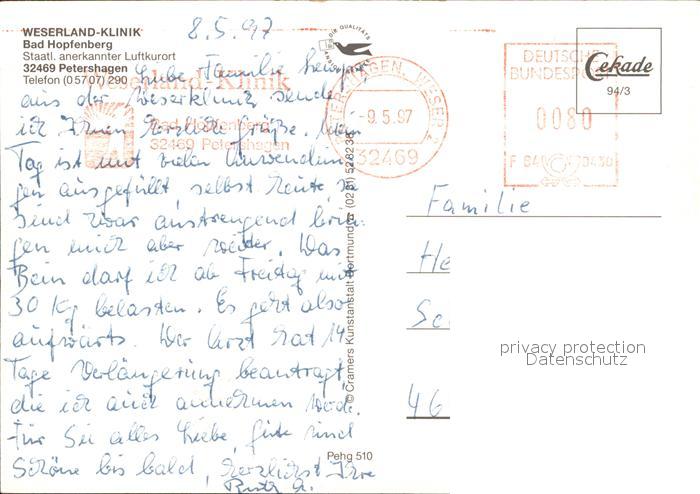 WESERLAND-KLINIK
Bad Hopfenberg
Staatl. anerkannter Luftkurort
32469 Petershagen
Telefon (05707) 290
8.5.97
Liebe Familie
aus der Weserklinik sende
ich Ihnen herzliche Grüße. Mein
Tag ist mit vielen Anwendun
gen ausgefüllt, selbst heute, sie
sind zwar anstrengend brin-
gen mich aber weiter. Das
Bein darf ich ab Freitag mit
30 Kg belasten. Es geht also
aufwärts. Der Arzt hat 14
Tage Verlängerung beantragt,
die ich auch annehmen werde.
Für Sie alles Liebe, gute und
Schöne bis bald, herzlichst Ihre
Ruth
Weserland-Klinik
Bad Hopfenberg
32469 Petershagen
DIE QUALITÄTS
PETERSHAGEN, WESER
-9.5.97
32469
DEUTSCHE
BUNDESPOST
0080
Cekade
94/3
© Cramers Kunstanstalt Dortmund
Pehg 510
Familie
He
Sc
46
privacy protection
Datenschutz